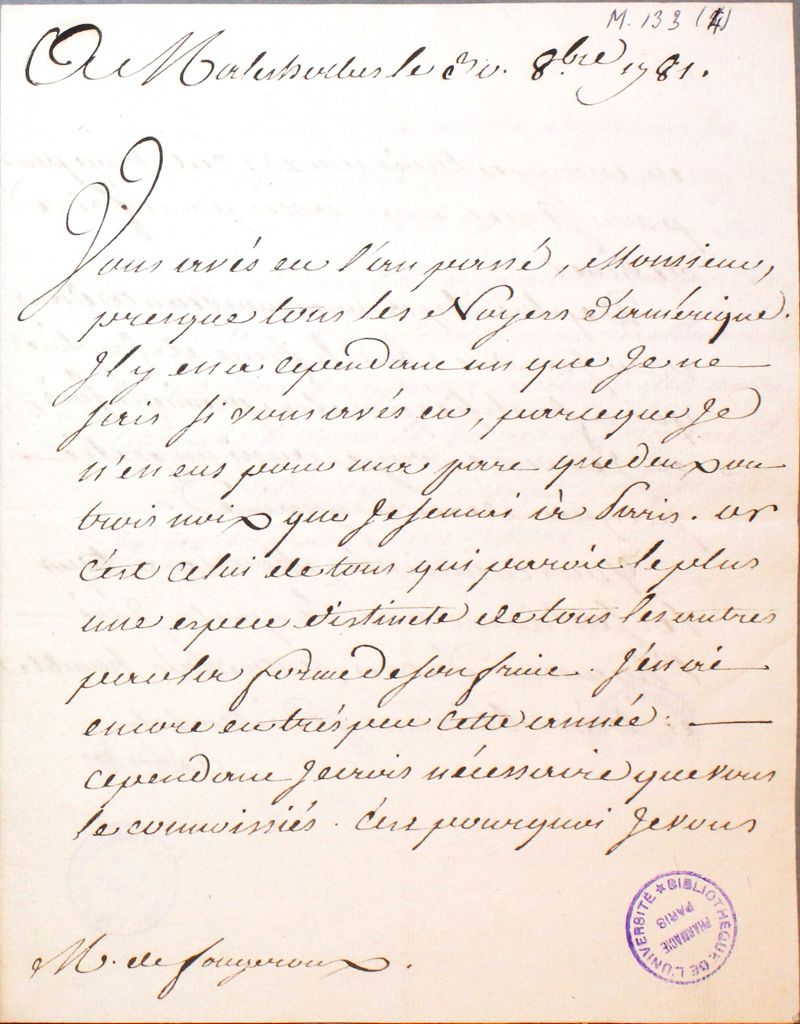 M. 133 (4)
A Malesherbes le 30. 8.bre 1781.
Vous avés eu l'an passé, Monsieur,
presque tous les Noyers d'amérique.
Il y en a cependant un que Je ne
sais si vous avés eu, parceque Je
n'en eus pour ma part que deux ou
trois noix que Je semai à Paris. or
c'est celui de tous qui paroit le plus
une espece distincte de tous les autres
par la forme de son fruit. J'en ai
encore eu très peu cette année.
cependant Je crois nécessaire que vous
le connoissiés. C'est pourquoi Je vous
M. de fougeroux.
BIBLIOTHÈQUE DE L'UNIVERSITÉ
PHARMACIE
PARIS